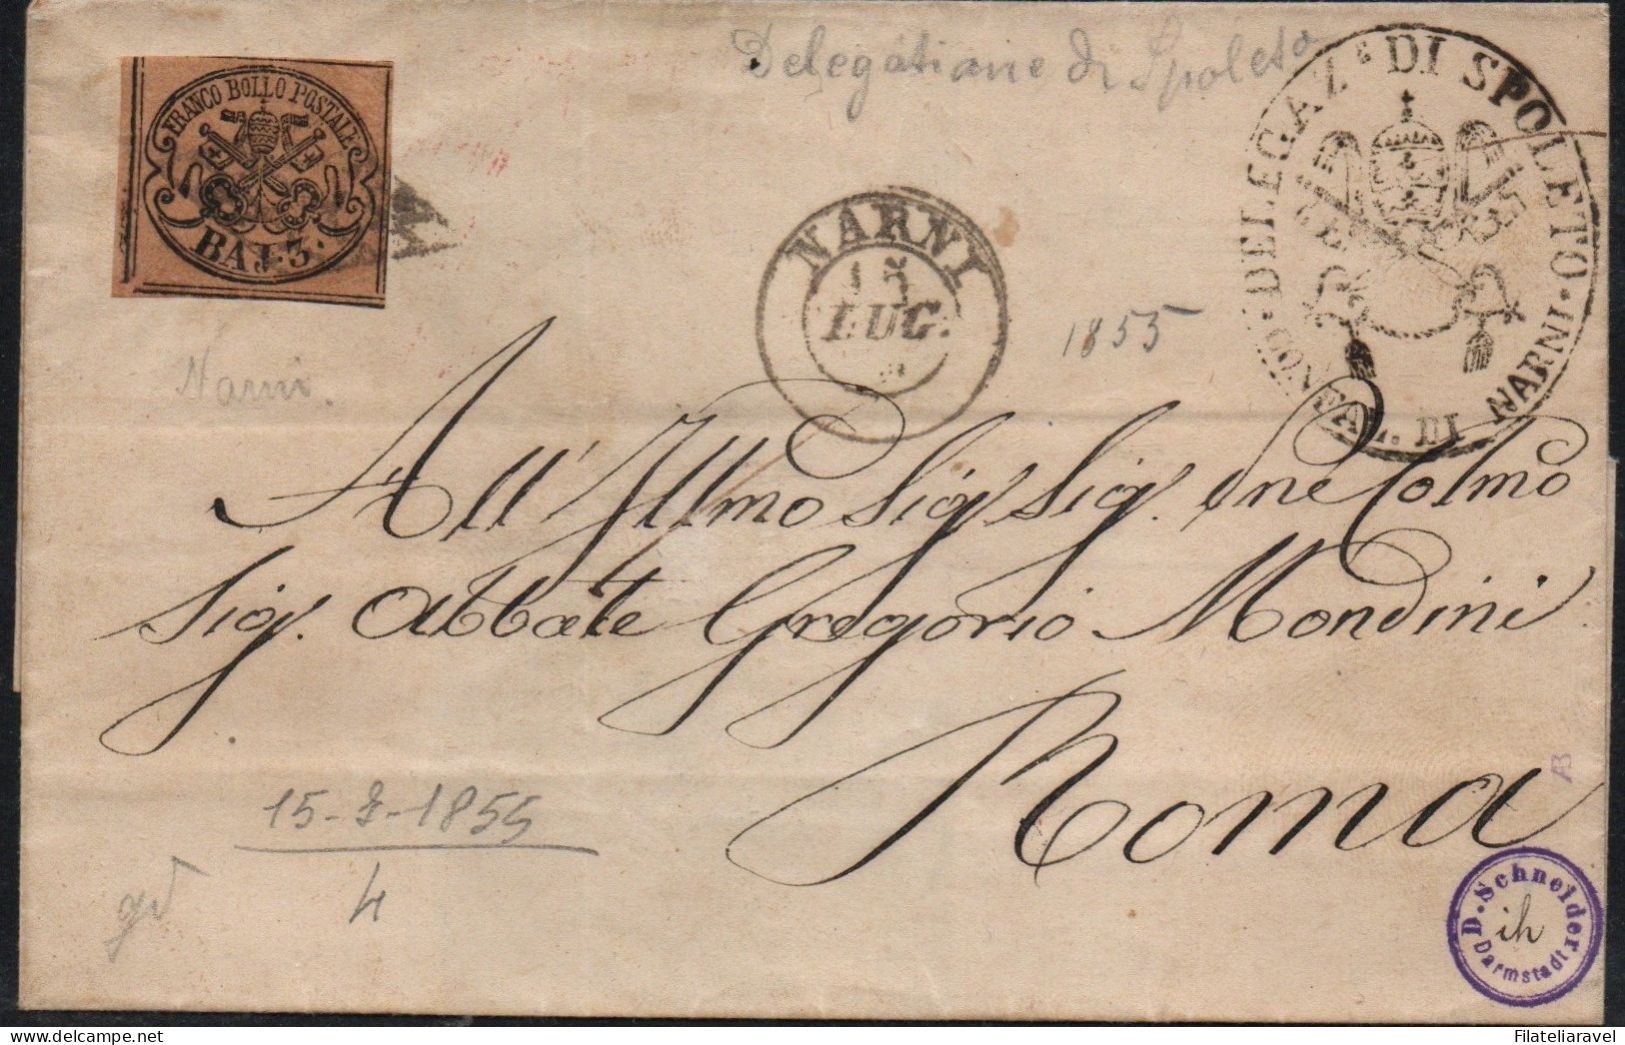 Delegatiane di Spoleto
FRANCO BOLLO POSTALE
BAJ. 3.
DELEGAZ.E DI SPOLETO
CONFAL. DI NARNI
NARNI
15
LUG.
1855
Narni.
All' Illmo Sig Sig. One Colmo
Sig. Abbate Gregorio Mondini
Roma
AB
15-7-1855
4
D. Schneider
ih
Darmstadt
delcampe.net
Filateliaravel